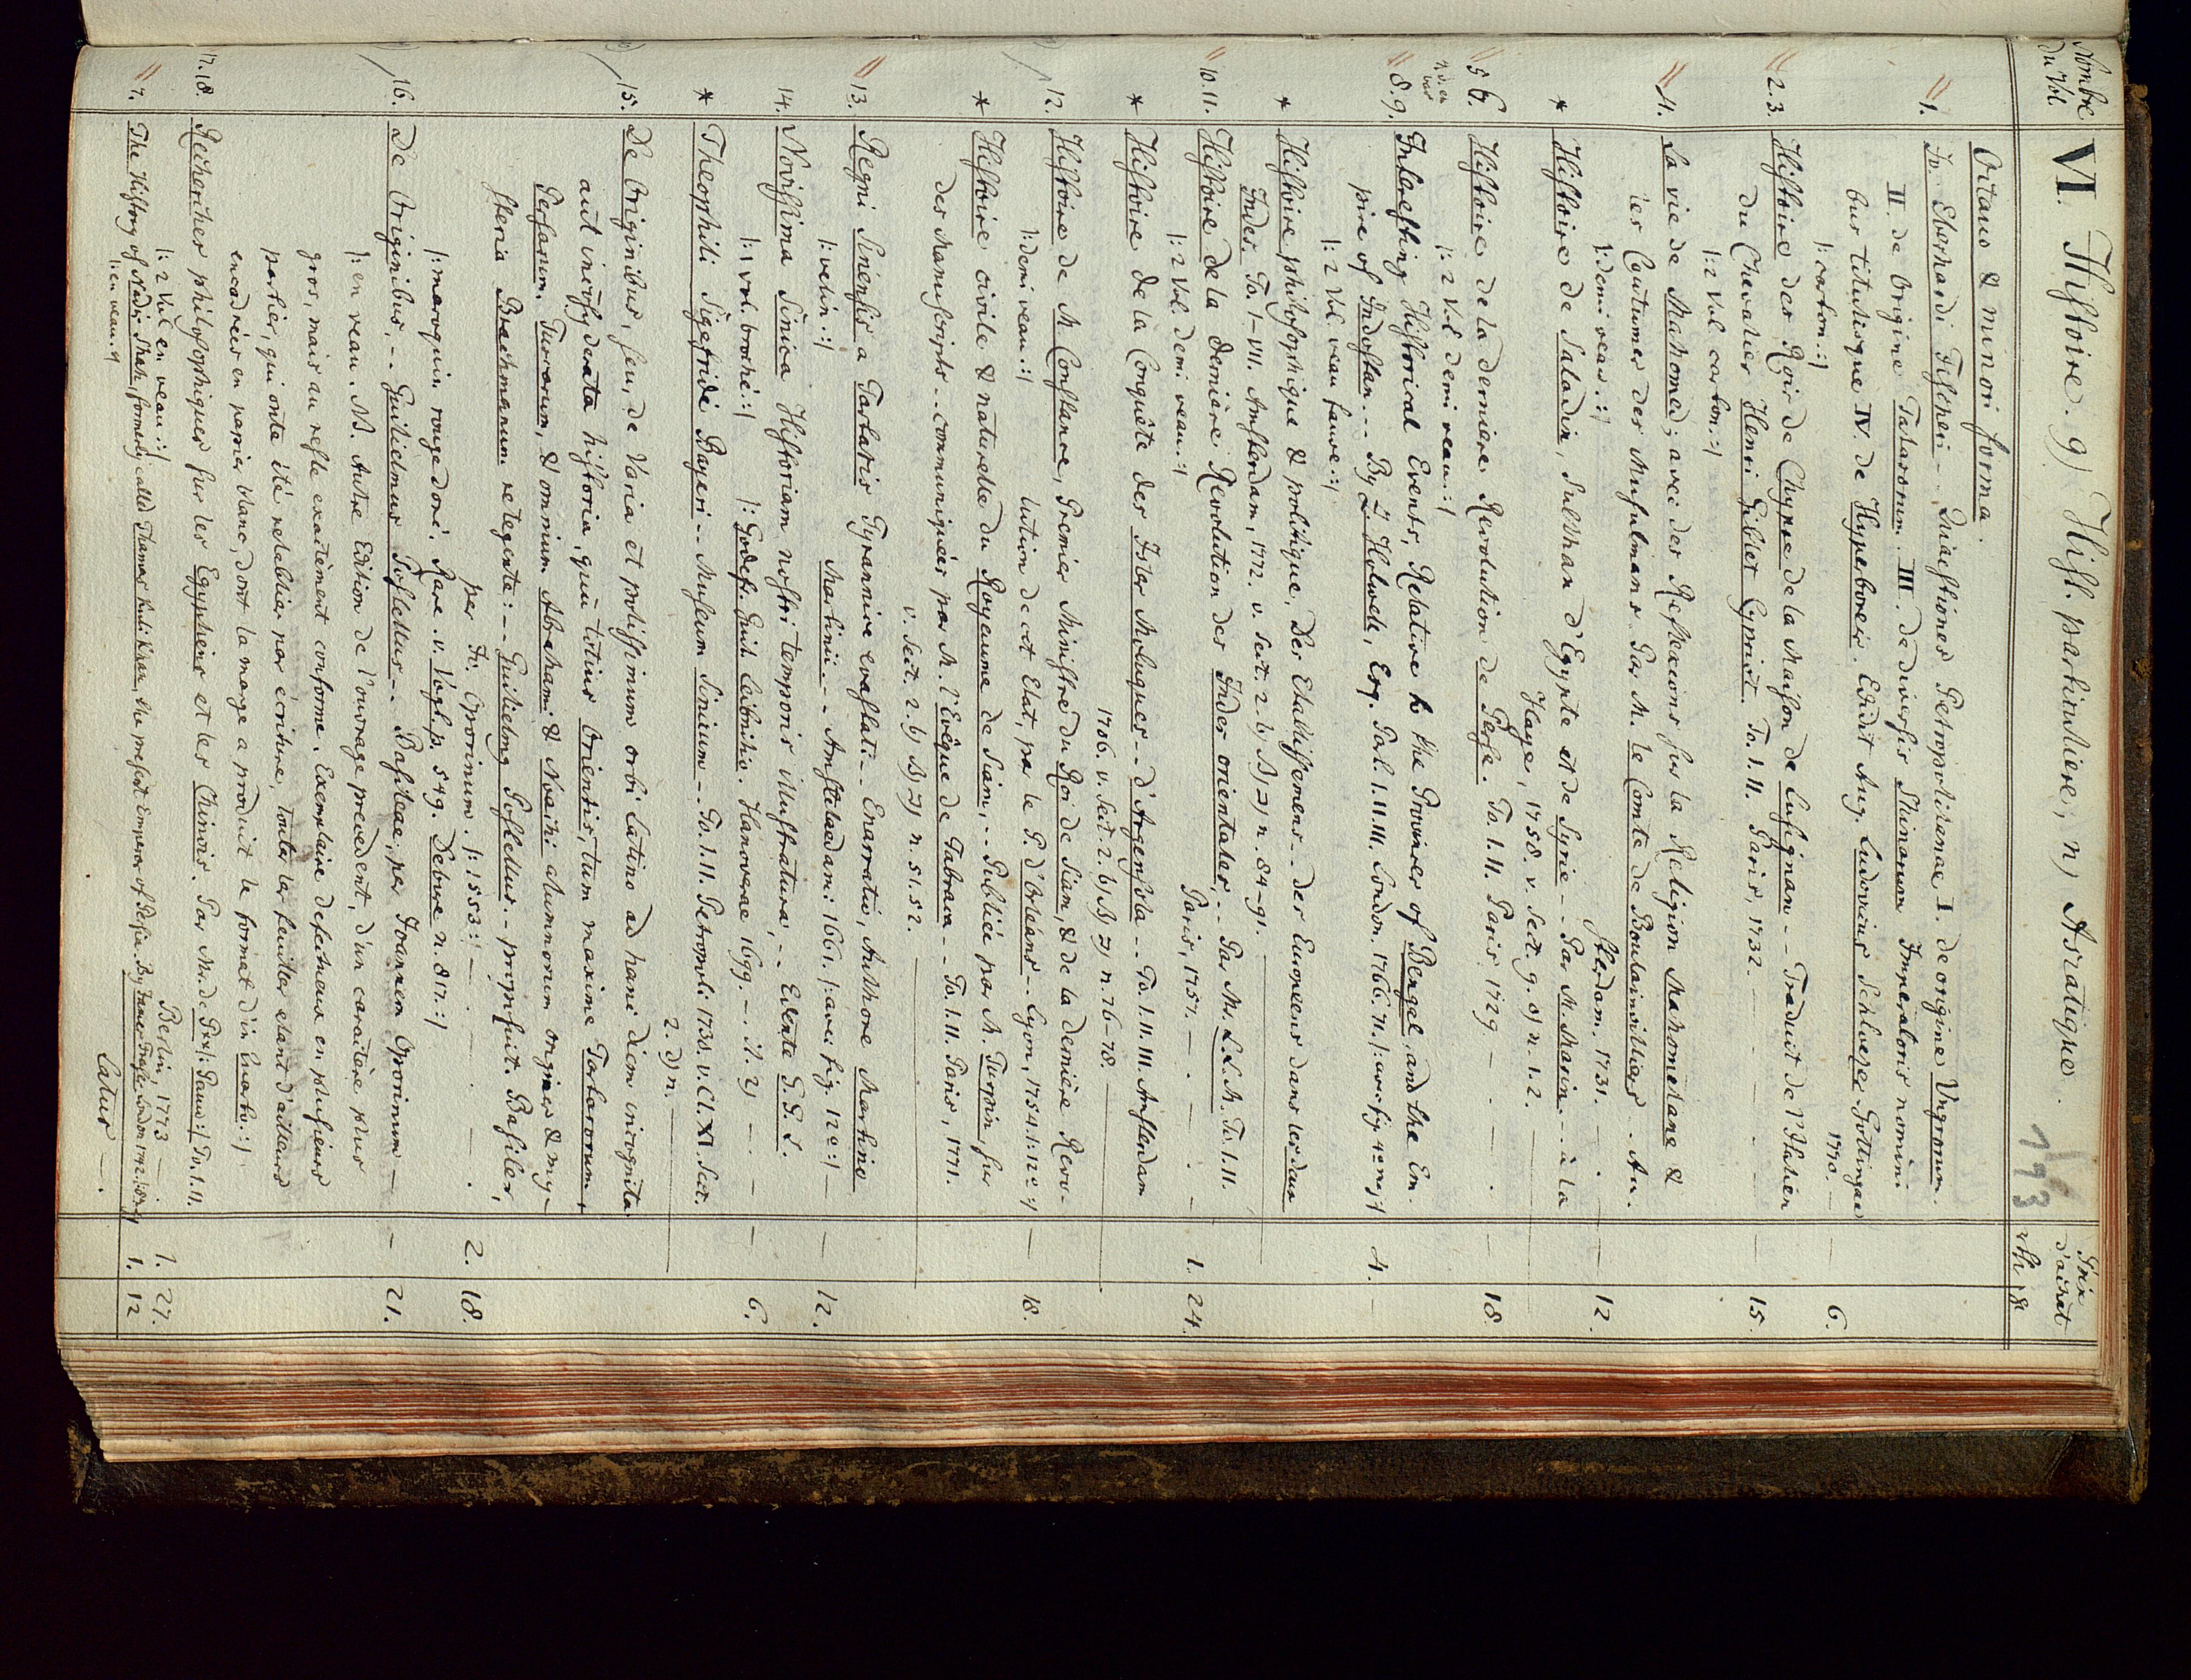 Nombre du Vol.
VI. Histoire. g) Hist. particuliere; n) Asiatique.
193
Prix d'achat
rth gr
Octavo & minori forma.
1. Jo. Eberhardi Fischeri - - Quaestiones Petropolitanae I. de origine Ungrorum.
II. de Origine Tatarorum. III. de diversis Shinarum Imperatoris nomini
bus titulisque IV. de Hyperboreis. Edidit Aug. Ludovicus Schlözer. Gottingae
1770. — — 6.
|: carton. :|
2.3. Histoire des Rois de Chypre de la Maison de Lusignan - - Traduit de l'Italien
du Chevalier Henri Giblet Cypriot. To. I. II. Paris, 1732. — — 15.
|: 2 Vol. carton. :|
4. La vie de Mahomed; avec des Reflexions sur la Religion Mahometane &
les Coutumes des Musulmans. Par M. le Comte de Boulainvilliers - - Am-
sterdam. 1731. — — 12.
|: demi veau. :|
* Histoire de Saladin, Sulthan d'Egypte et de Syrie - - Par M. Marin. - - à la
Haye, 1758. v. Sect. g. o) n. 1.2.
5 6. Histoire de la derniere Revolution de Perse. To. I. II. Paris 1729 — — 18.
|: 2 Vol. demi veau. :|
8. 9. Interesting Historical Events, Relative to the Provinces of Bengal, and the Em-
pire of Indostan - - By I. Z. Holwell, Esq. Pat. I. II. III. London. 1766. 71. |: avec fig. 4. —
|: 2 Vol. veau fauve :|
* Histoire philosophique & politique, Des Etablissemens - - des Europeens dans les deux
Indes. To. I-VII. Amsterdam, 1772. v. Sect. 2. b) n. 84-91.
10. 11. Histoire de la derniere Revolution des Indes orientales, - - Par Mr. L. L. M. To. I. II.
Paris, 1757. — — 1. 24.
|: 2 Vol. demi veau. :|
* Histoire de la Conquête des Isles Moluques - - d'Argensola - - To. I. II. III. Amsterdam
1706. v. Sect. 2. b) n. 76-78.
12. Histoire de M. Constance, Premier Ministre du Roi de Siam, & de la derniere Revo-
lution de cet Etat, par le P. d'Orleans - - Lyon, 1754. |: 12° :| — 18.
|: demi veau. :|
* Histoire civile & naturelle du Royaume de Siam, - - Publiée par M. Turpin, sur
des Manuscripts - - communiqués par M. l'Evêque de Tabraca - - To. I. II. Paris, 1771.
v. Sect. 2. b) n. 51. 52.
13. Regni Sinensis a Tartaris Tyrannice evastati - - Enarratio, Authore Martino
Martinii - - Amstelaedami 1661. |: avec fig. 12° :| — 12.
|: velin :|
14. Novissima Sinica Historiam nostri temporis illustratura, - - Edente G. G. L.
|: Godefr. Guil. Leibnitio. Hanoverae 1699. — 6.
|: 1 vol. broché. :|
* Theophili Sigefridi Bayeri - - Museum Sinicum - - To. I. II. Petropoli 1730. v. Cl. XI. Sect.
2. d) n.
15. De Originibus, seu, de Varia et potissimum orbi Latino ad hanc diem incognita
aut inconsyderata historia, quu totius Orientis, tum maxime Tartarorum,
Persarum, Turcarum, & omnium Abrahami & Noachi alumnorum origines & my-
steria Brachmanum retegente: - - Guilielmus Postellus. - - proposuit. Basileae,
per Jo. Oporinum. |: 1553 :| — — 2. 18.
|: maroquin rouge doré. Rare. v. Vogt. p. 549. Debure n. 817. :|
16. De Originibus, - - Guilielmus Postellus - - Basileae, per Joannem Oporinum — — 21.
|: en veau. NB. Autre Edition de l'ouvrage precedent, d'un caractère plus
gros, mais au reste exactement conforme. Exemplaire defectueux en plusieurs
parties, qui ont été retablies par écriture, toutes les feuilles etant d'ailleurs
encadrées en papier blanc, dont la marge a produit le format d'un Quarto. :|
17. 18. Recherches philosophiques sur les Egyptiens et les Chinois. Par Mr. de P** |: Pauw :| To. I. II.
Berlin, 1773 — — 1. 27.
|: 2 Vol. en veau :|
7. The History of Nadir Shah, formerly called Thamas Kuli Khan, the present Emperor of Persia. By James Fraser. London 1742. 1. 12
|: en veau. :|
Latus — .